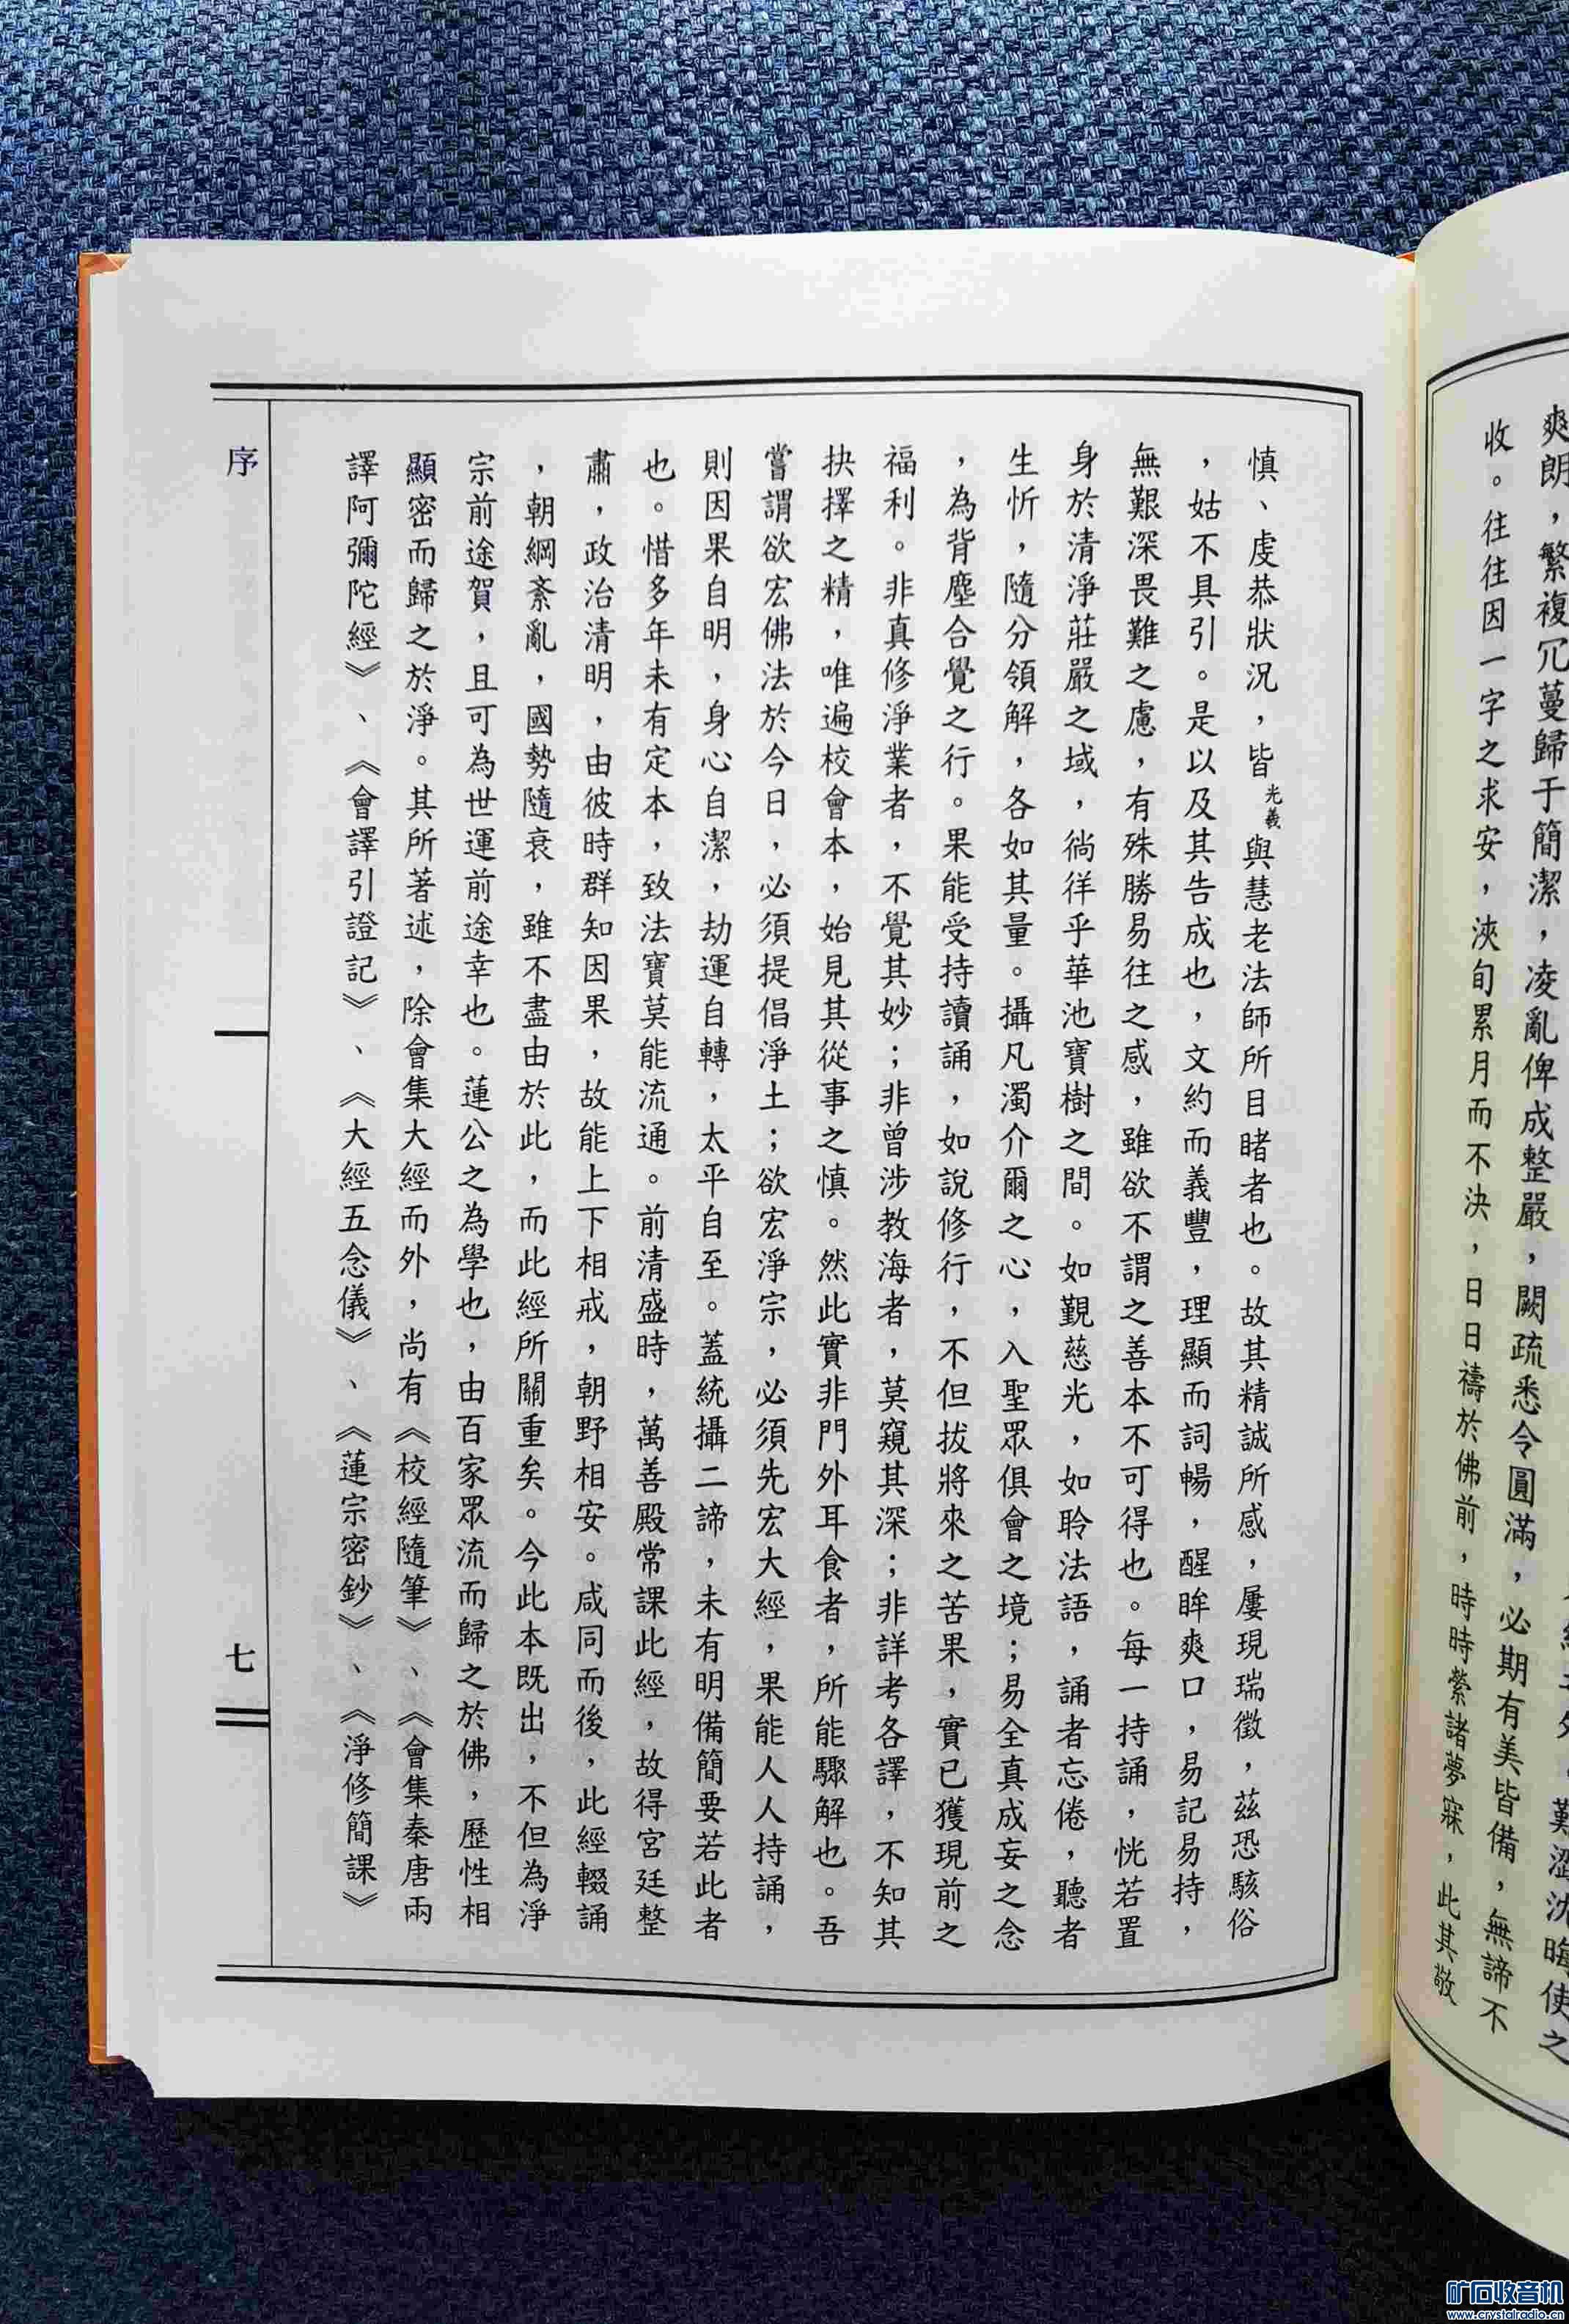 爽朗，繁複冗蔓歸于簡潔，凌亂俾成整嚴，闕疏悉令圓滿，必期有美皆備，無諦不
收。往往因一字之求安，浹旬累月而不決，日日禱於佛前，時時縈諸夢寐，此其敬
慎、虔恭狀況，皆光義與慧老法師所目睹者也。故其精誠所感，屢現瑞徵，茲恐駭俗
，姑不具引。是以及其告成也，文約而義豐，理顯而詞暢，醒眸爽口，易記易持，
無艱深畏難之慮，有殊勝易往之感，雖欲不謂之善本不可得也。每一持誦，恍若置
身於清淨莊嚴之域，徜徉乎華池寶樹之間。如覲慈光，如聆法語，誦者忘倦，聽者
生忻，隨分領解，各如其量。攝凡濁介爾之心，入聖眾俱會之境；易全真成妄之念
，為背塵合覺之行。果能受持讀誦，如說修行，不但拔將來之苦果，實已獲現前之
福利。非真修淨業者，不覺其妙；非曾涉教海者，莫窺其深；非詳考各譯，不知其
抉擇之精，唯遍校會本，始見其從事之慎。然此實非門外耳食者，所能驟解也。吾
嘗謂欲宏佛法於今日，必須提倡淨土；欲宏淨宗，必須先宏大經，果能人人持誦，
則因果自明，身心自潔，劫運自轉，太平自至。蓋統攝二諦，未有明備簡要若此者
也。惜多年未有定本，致法寶莫能流通。前清盛時，萬善殿常課此經，故得宮廷整
肅，政治清明，由彼時群知因果，故能上下相戒，朝野相安。咸同而後，此經輟誦
，朝綱紊亂，國勢隨衰，雖不盡由於此，而此經所關重矣。今此本既出，不但為淨
宗前途賀，且可為世運前途幸也。蓮公之為學也，由百家眾流而歸之於佛，歷性相
顯密而歸之於淨。其所著述，除會集大經而外，尚有《校經隨筆》、《會集秦唐兩
譯阿彌陀經》、《會譯引證記》、《大經五念儀》、《蓮宗密鈔》、《淨修簡課》
序
七
矿石收音机
www.crystalradio.cn